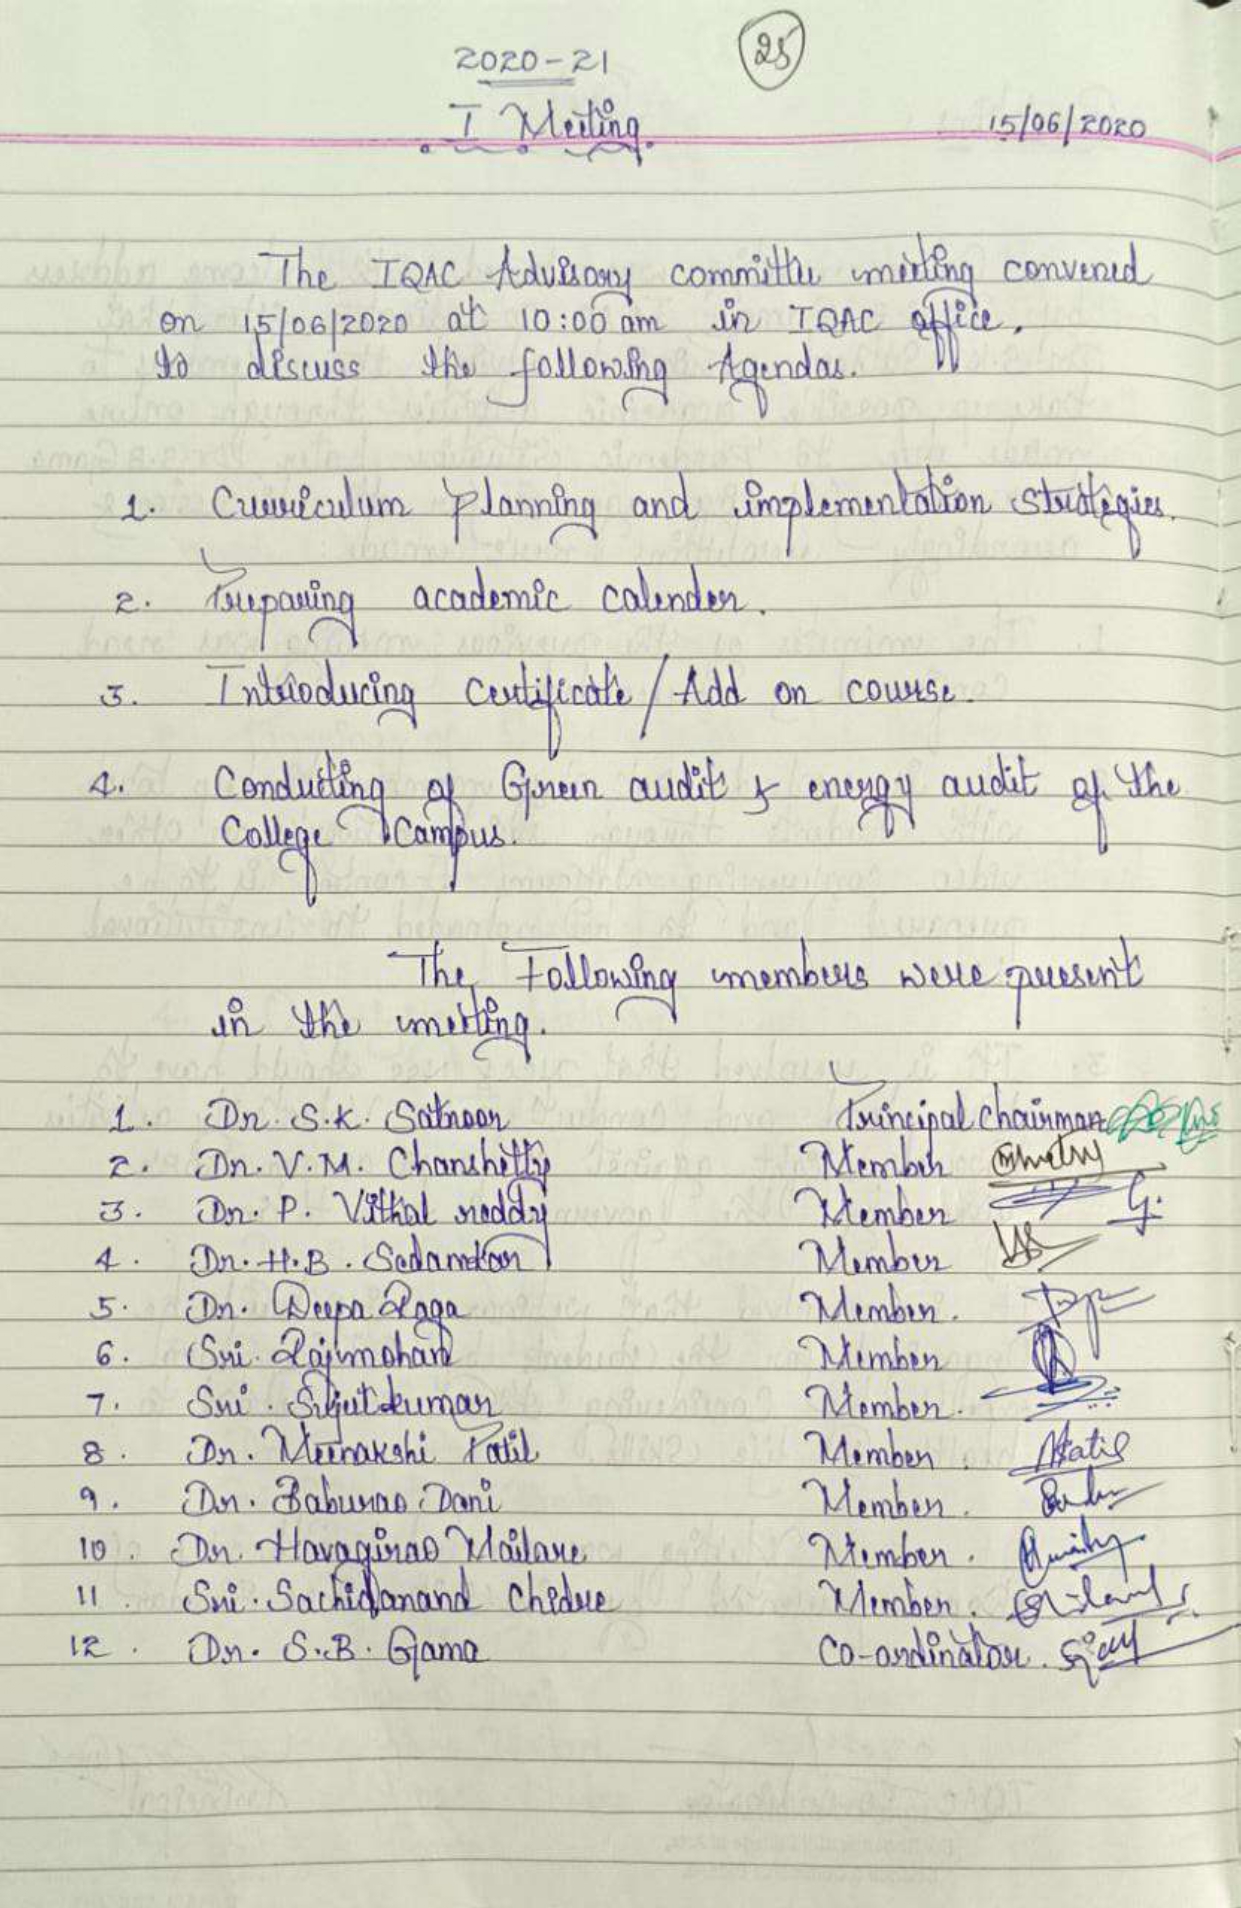 2020-21
25
I Meeting
15/06/2020
The IQAC Advisory committee meeting convened
on 15/06/2020 at 10:00 am in IQAC office.
to discuss the following Agendas.
1. Curriculum Planning and implementation strategies.
2. Preparing academic calender.
3. Introducing Certificate/Add on course.
4. Conducting of Green audit & energy audit of the
College Campus.
The Following members were present
in the meeting.
1. Dr. S.K. Satnoor Principal chairman
2. Dr. V.M. Chanshetty Member
3. Dr. P. Vithal reddy Member
4. Dr. H.B. Sedamkar Member
5. Dr. Deepa Raga Member.
6. Sri. Rajmohan Member
7. Sri. Sujutkumar Member.
8. Dr. Meenakshi Patil Member.
9. Dr. Baburao Dani Member.
10. Dr. Havagirao Mailare Member.
11. Sri. Sachidanand Chidre Member.
12. Dr. S.B. Gama Co-ordinator.